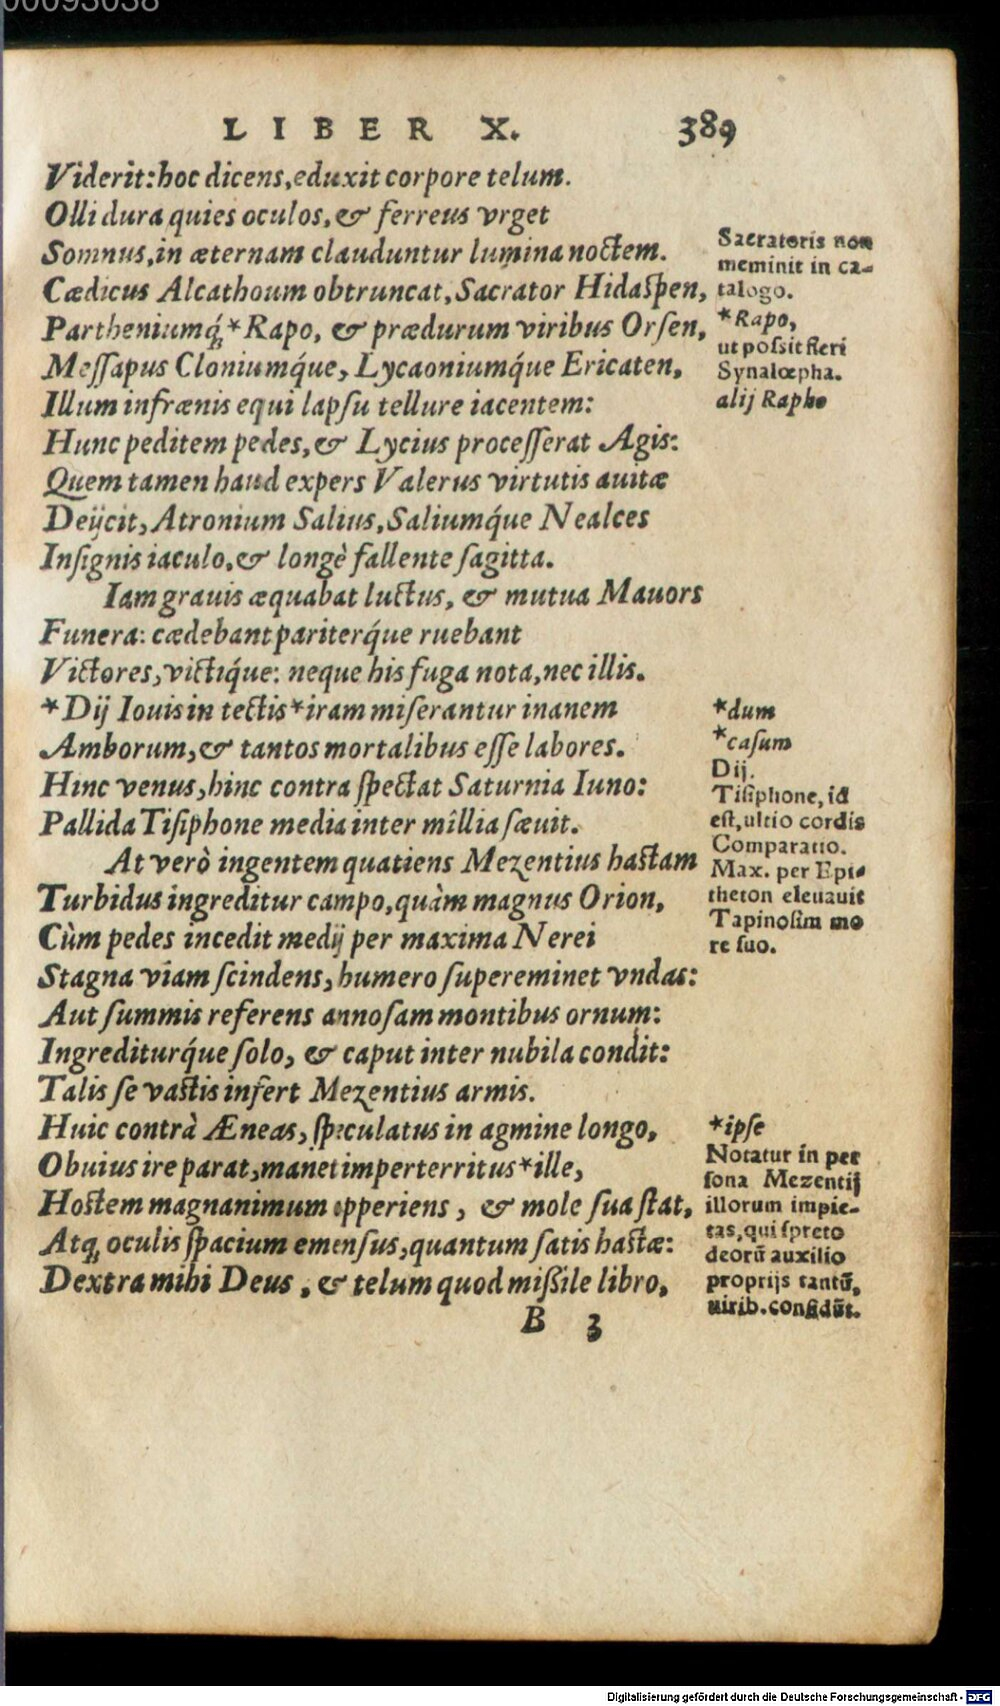 00093038
LIBER X. 389
Viderit: hoc dicens, eduxit corpore telum.
Olli dura quies oculos, & ferreus vrget
Somnus, in æternam clauduntur lumina noctem.
Cædicus Alcathoum obtruncat, Sacrator Hidaspen,
Partheniumq́; *Rapo, & prædurum viribus Orsen,
Messapus Cloniumq́ue, Lycaoniumq́ue Ericaten,
Illum infrænis equi lapsu tellure iacentem:
Hunc peditem pedes, & Lycius processerat Agis:
Quem tamen haud expers Valerus virtutis auitæ
Deijcit, Atronium Salius, Saliumq́ue Nealces
Insignis iaculo, & longè fallente sagitta.
Iam grauis æquabat luctus, & mutua Mauors
Funera: cædebant pariterq́ue ruebant
Victores, victiq́ue: neque his fuga nota, nec illis.
*Dij Iouis in tectis *iram miserantur inanem
Amborum, & tantos mortalibus esse labores.
Hinc venus, hinc contra spectat Saturnia Iuno:
Pallida Tisiphone media inter millia sæuit.
At verò ingentem quatiens Mezentius hastam
Turbidus ingreditur campo, quàm magnus Orion,
Cùm pedes incedit medij per maxima Nerei
Stagna viam scindens, humero supereminet vndas:
Aut summis referens annosam montibus ornum:
Ingrediturq́ue solo, & caput inter nubila condit:
Talis se vastis infert Mezentius armis.
Huic contrà Æneas, speculatus in agmine longo,
Obuius ire parat, manet imperterritus *ille,
Hostem magnanimum opperiens, & mole sua stat,
Atq; oculis spacium emensus, quantum satis hastæ:
Dextra mihi Deus, & telum quod missile libro,
B 3
Sacratoris non
meminit in ca-
talogo.
*Rapo,
ut possit fieri
Synalœpha.
alij Rapho
*dum
*casum
Dij.
Tisiphone, id
est, ultio cordis
Comparatio.
Max. per Epi-
theton eleuauit
Tapinosim mo
re suo.
*ipse
Notatur in per
sona Mezentij
illorum impie-
tas, qui spreto
deorũ auxilio
proprijs tantũ,
uirib. confidũt.
Digitalisierung gefördert durch die Deutsche Forschungsgemeinschaft - DFG